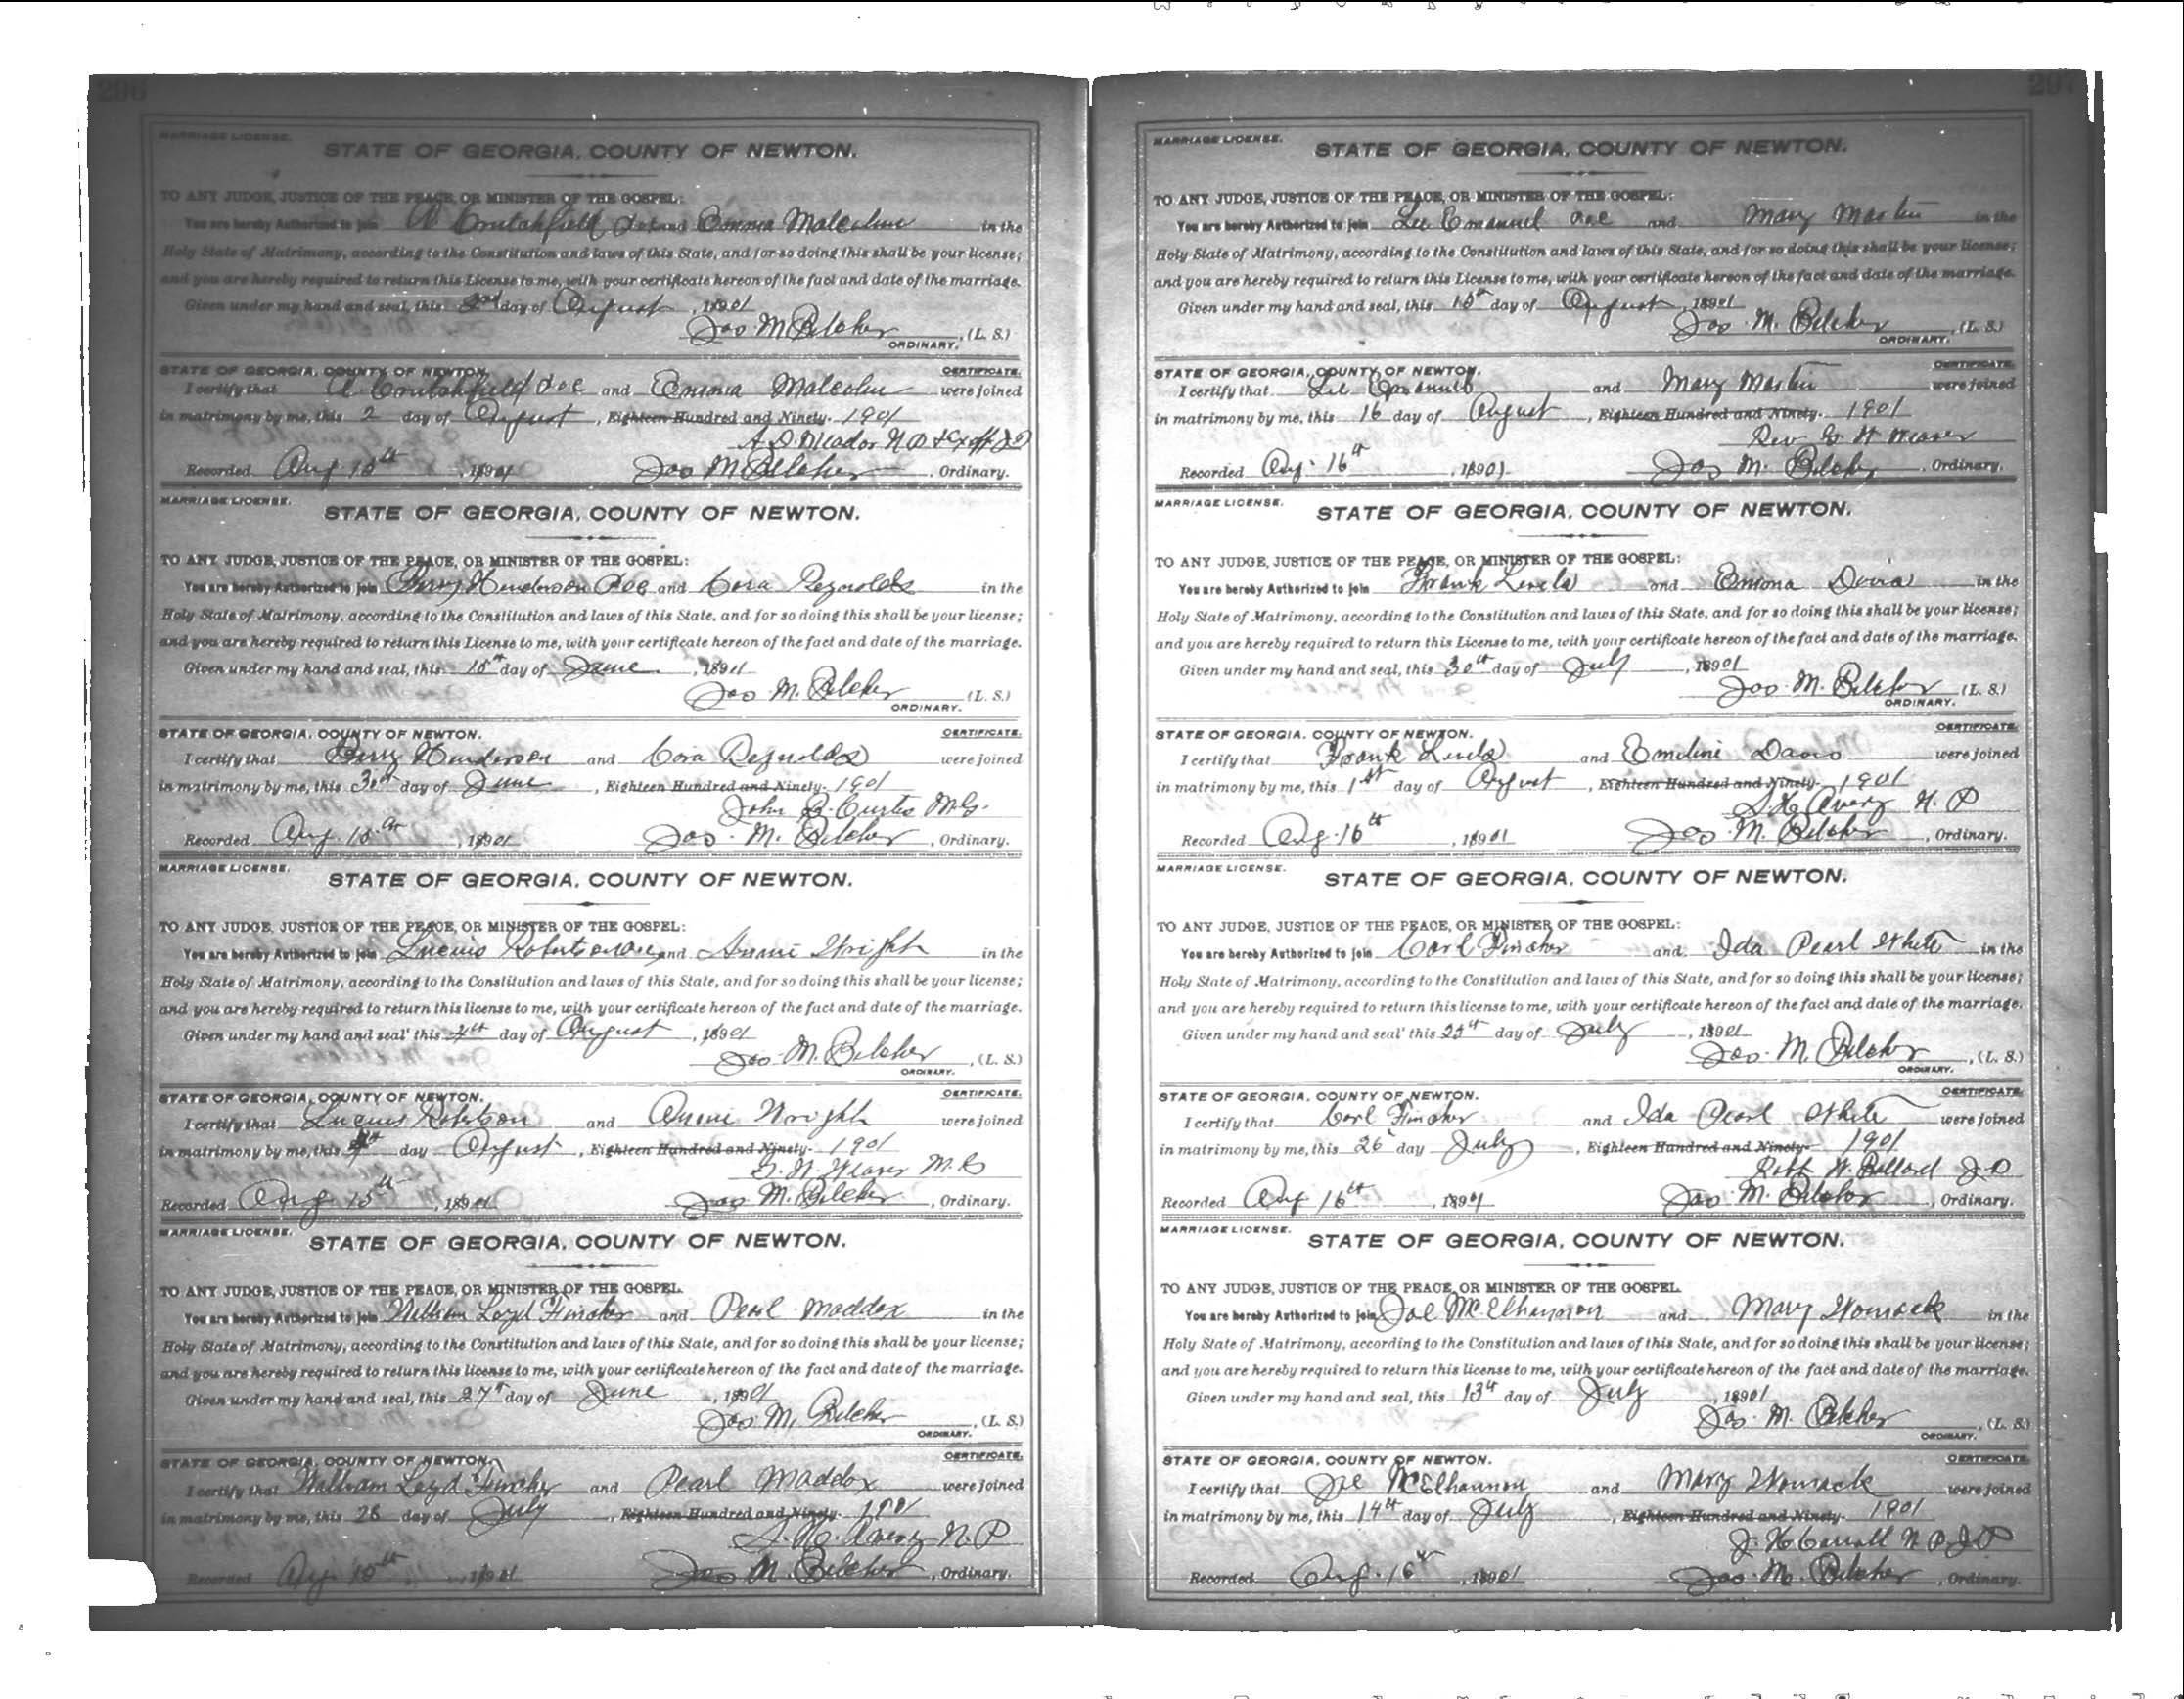 296
MARRIAGE LICENSE.
STATE OF GEORGIA, COUNTY OF NEWTON.
TO ANY JUDGE, JUSTICE OF THE PEACE, OR MINISTER OF THE GOSPEL:
You are hereby Authorized to join Crutchfield and Emma Malcolm in the
Holy State of Matrimony, according to the Constitution and laws of this State, and for so doing this shall be your license;
and you are hereby required to return this License to me, with your certificate hereon of the fact and date of the marriage.
Given under my hand and seal, this 2nd day of August, 1901
Jos M. Belcher, (L. S.)
ORDINARY.
STATE OF GEORGIA, COUNTY OF NEWTON. CERTIFICATE.
I certify that Crutchfield and Emma Malcolm were joined
in matrimony by me, this 2 day of August, Eighteen Hundred and Ninety- 1901
A. D. Meador N P & Exoff J P
Recorded Aug 15th, 1901 Jos M. Belcher, Ordinary.
MARRIAGE LICENSE.
STATE OF GEORGIA, COUNTY OF NEWTON.
TO ANY JUDGE, JUSTICE OF THE PEACE, OR MINISTER OF THE GOSPEL:
You are hereby Authorized to join Perry Henderson and Cora Reynolds in the
Holy State of Matrimony, according to the Constitution and laws of this State, and for so doing this shall be your license;
and you are hereby required to return this License to me, with your certificate hereon of the fact and date of the marriage.
Given under my hand and seal, this 15th day of June, 1901
Jos M. Belcher (L. S.)
ORDINARY.
STATE OF GEORGIA, COUNTY OF NEWTON. CERTIFICATE.
I certify that Perry Henderson and Cora Reynolds were joined
in matrimony by me, this 30th day of June, Eighteen Hundred and Ninety- 1901
John B. Curtis M.G.
Recorded Aug. 15th, 1901 Jos. M. Belcher, Ordinary.
MARRIAGE LICENSE.
STATE OF GEORGIA, COUNTY OF NEWTON.
TO ANY JUDGE, JUSTICE OF THE PEACE, OR MINISTER OF THE GOSPEL:
You are hereby Authorized to join Lucius Robertson and Annie Wright in the
Holy State of Matrimony, according to the Constitution and laws of this State, and for so doing this shall be your license;
and you are hereby required to return this license to me, with your certificate hereon of the fact and date of the marriage.
Given under my hand and seal' this 4th day of August, 1901
Jos. M. Belcher, (L. S.)
ORDINARY.
STATE OF GEORGIA, COUNTY OF NEWTON. CERTIFICATE.
I certify that Lucius Robertson and Annie Wright were joined
in matrimony by me, this 4th day August, Eighteen Hundred and Ninety- 1901
G. H. Weaver M. G
Recorded Aug 15th, 1901 Jos M. Belcher, Ordinary.
MARRIAGE LICENSE.
STATE OF GEORGIA, COUNTY OF NEWTON.
TO ANY JUDGE, JUSTICE OF THE PEACE, OR MINISTER OF THE GOSPEL.
You are hereby Authorized to join William Loyd Fincher and Pearl Maddox in the
Holy State of Matrimony, according to the Constitution and laws of this State, and for so doing this shall be your license;
and you are hereby required to return this license to me, with your certificate hereon of the fact and date of the marriage.
Given under my hand and seal, this 27th day of June, 1901
Jos M. Belcher, (L. S.)
ORDINARY.
STATE OF GEORGIA, COUNTY OF NEWTON. CERTIFICATE.
I certify that William Loyd Fincher and Pearl Maddox were joined
in matrimony by me, this 28 day of July, Eighteen Hundred and Ninety- 1901
S. H. Avery N. P
Recorded Aug 15th, 1901 Jos M. Belcher, Ordinary.
297
MARRIAGE LICENSE.
STATE OF GEORGIA, COUNTY OF NEWTON.
TO ANY JUDGE, JUSTICE OF THE PEACE, OR MINISTER OF THE GOSPEL:
You are hereby Authorized to join Lee Emanuel and Mary Martin in the
Holy State of Matrimony, according to the Constitution and laws of this State, and for so doing this shall be your license;
and you are hereby required to return this License to me, with your certificate hereon of the fact and date of the marriage.
Given under my hand and seal, this 15th day of August, 1901
Jos. M. Belcher, (L. S.)
ORDINARY.
STATE OF GEORGIA, COUNTY OF NEWTON. CERTIFICATE.
I certify that Lee Emanuel and Mary Martin were joined
in matrimony by me, this 16 day of August, Eighteen Hundred and Ninety- 1901
Rev G H Weaver
Recorded Aug. 16th, 1901 Jos M. Belcher, Ordinary.
MARRIAGE LICENSE.
STATE OF GEORGIA, COUNTY OF NEWTON.
TO ANY JUDGE, JUSTICE OF THE PEACE, OR MINISTER OF THE GOSPEL:
You are hereby Authorized to join Frank and Emma Davis in the
Holy State of Matrimony, according to the Constitution and laws of this State, and for so doing this shall be your license;
and you are hereby required to return this License to me, with your certificate hereon of the fact and date of the marriage.
Given under my hand and seal, this 30th day of July, 1901
Jos. M. Belcher (L. S.)
ORDINARY.
STATE OF GEORGIA, COUNTY OF NEWTON. CERTIFICATE.
I certify that Frank and Emeline Davis were joined
in matrimony by me, this 1st day of August, Eighteen Hundred and Ninety- 1901
S. H. Avery N. P
Recorded Aug. 16th, 1901 Jos M. Belcher, Ordinary.
MARRIAGE LICENSE.
STATE OF GEORGIA, COUNTY OF NEWTON.
TO ANY JUDGE, JUSTICE OF THE PEACE, OR MINISTER OF THE GOSPEL:
You are hereby Authorized to join Carl Fincher and Ida Pearl White in the
Holy State of Matrimony, according to the Constitution and laws of this State, and for so doing this shall be your license;
and you are hereby required to return this license to me, with your certificate hereon of the fact and date of the marriage.
Given under my hand and seal' this 25th day of July, 1901
Jos. M. Belcher, (L. S.)
ORDINARY.
STATE OF GEORGIA, COUNTY OF NEWTON. CERTIFICATE.
I certify that Carl Fincher and Ida Pearl White were joined
in matrimony by me, this 26 day July, Eighteen Hundred and Ninety- 1901
Robt W. Ballard J. P
Recorded Aug 16th, 1901 Jos M. Belcher, Ordinary.
MARRIAGE LICENSE.
STATE OF GEORGIA, COUNTY OF NEWTON.
TO ANY JUDGE, JUSTICE OF THE PEACE, OR MINISTER OF THE GOSPEL.
You are hereby Authorized to join Joe McElhannon and Mary Womack in the
Holy State of Matrimony, according to the Constitution and laws of this State, and for so doing this shall be your license;
and you are hereby required to return this license to me, with your certificate hereon of the fact and date of the marriage.
Given under my hand and seal, this 13th day of July, 1901
Jos. M. Belcher, (L. S.)
ORDINARY.
STATE OF GEORGIA, COUNTY OF NEWTON. CERTIFICATE.
I certify that Joe McElhannon and Mary Womack were joined
in matrimony by me, this 14th day of July, Eighteen Hundred and Ninety- 1901
J. H Carroll N. P. J P
Recorded Aug. 16th, 1901 Jos. M. Belcher, Ordinary.